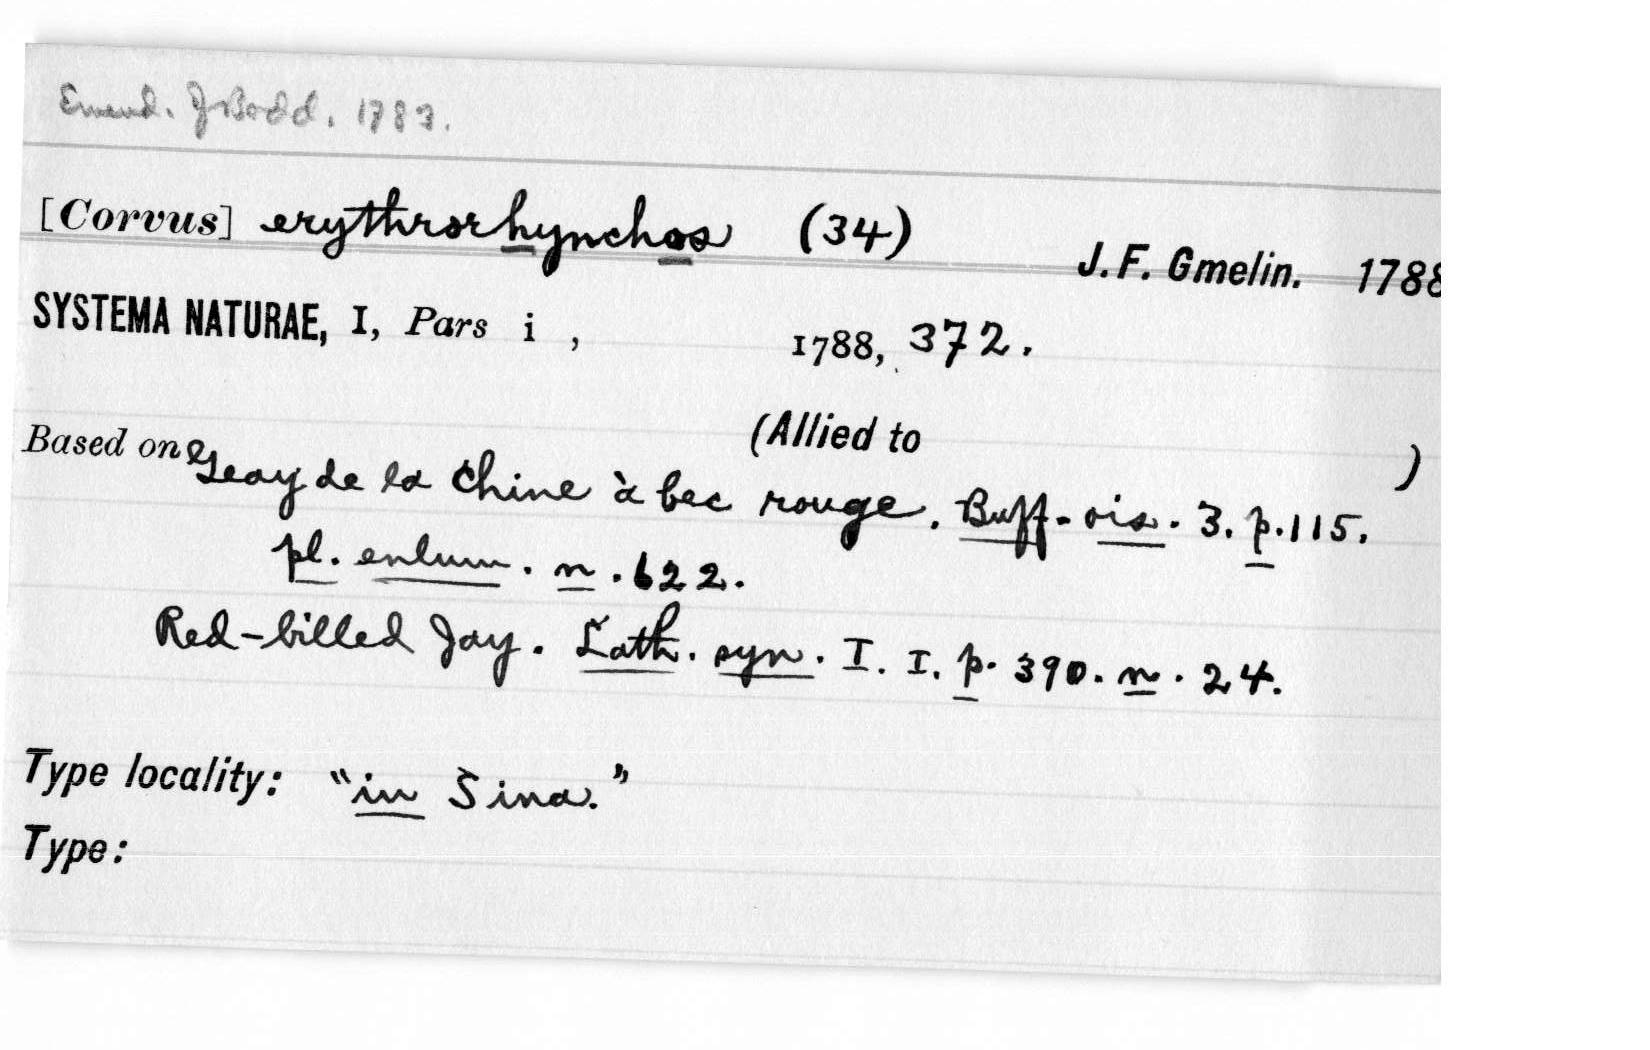 Emend. J Bodd. 1783.
[Corvus] erythrorhynchos (34)
J.F. Gmelin. 1788
SYSTEMA NATURAE, I, Pars i , 1788, 372.
(Allied to )
Based on Geay de la Chine à bec rouge. Buff. ois. 3. p. 115.
pl. enlum. n. 622.
Red-billed Jay. Lath. syn. I. I. p. 390. n. 24.
Type locality: "in Sina."
Type: